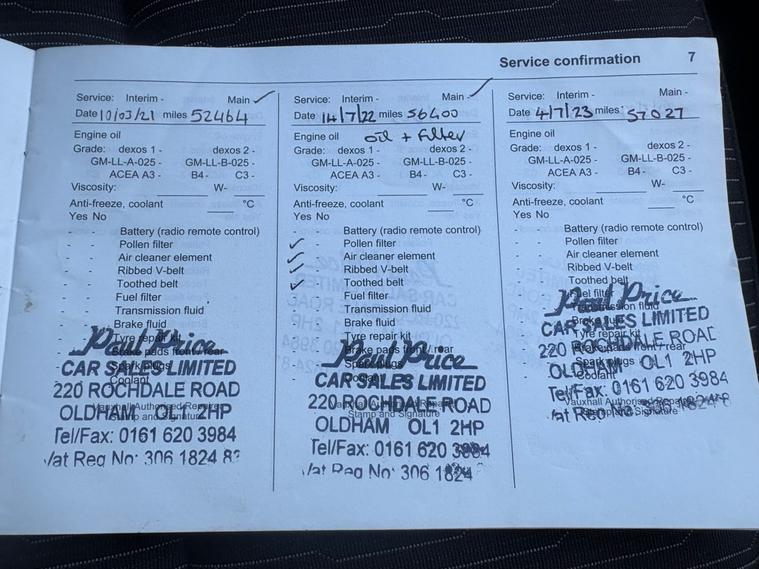 Service confirmation 7
Service: Interim - Main - ✓
Date 10/03/21 miles 52464
Engine oil
Grade: dexos 1 - dexos 2 -
GM-LL-A-025 - GM-LL-B-025 -
ACEA A3 - B4 - C3 -
Viscosity: W-
Anti-freeze, coolant °C
Yes No
- - Battery (radio remote control)
- - Pollen filter
- - Air cleaner element
- - Ribbed V-belt
- - Toothed belt
- - Fuel filter
- - Transmission fluid
- - Brake fluid
- - Tyre repair kit
- - Brake pads front / rear
- - Spark plugs
- - Coolant
Vauxhall Authorised Repairer
Stamp and Signature
Paul Price
CAR SALES LIMITED
220 ROCHDALE ROAD
OLDHAM OL1 2HP
Tel/Fax: 0161 620 3984
Vat Reg No: 306 1824
Service: Interim - Main - ✓
Date 14/7/22 miles 56400
Engine oil oil + filter
Grade: dexos 1 - dexos 2 -
GM-LL-A-025 - GM-LL-B-025 -
ACEA A3 - B4 - C3 -
Viscosity: W-
Anti-freeze, coolant °C
Yes No
- - Battery (radio remote control)
✓ - Pollen filter
✓ - Air cleaner element
✓ - Ribbed V-belt
✓ - Toothed belt
- - Fuel filter
- - Transmission fluid
- - Brake fluid
- - Tyre repair kit
- - Brake pads front / rear
- - Spark plugs
- - Coolant
Vauxhall Authorised Repairer
Stamp and Signature
Paul Price
CAR SALES LIMITED
220 ROCHDALE ROAD
OLDHAM OL1 2HP
Tel/Fax: 0161 620 3984
Vat Reg No: 306 1824
Service: Interim - Main -
Date 4/7/23 miles 57027
Engine oil
Grade: dexos 1 - dexos 2 -
GM-LL-A-025 - GM-LL-B-025 -
ACEA A3 - B4 - C3 -
Viscosity: W-
Anti-freeze, coolant °C
Yes No
- - Battery (radio remote control)
- - Pollen filter
- - Air cleaner element
- - Ribbed V-belt
- - Toothed belt
- - Fuel filter
- - Transmission fluid
- - Brake fluid
- - Tyre repair kit
- - Brake pads front / rear
- - Spark plugs
- - Coolant
Vauxhall Authorised Repairer
Stamp and Signature
Paul Price
CAR SALES LIMITED
220 ROCHDALE ROAD
OLDHAM OL1 2HP
Tel/Fax: 0161 620 3984
Vat Reg No